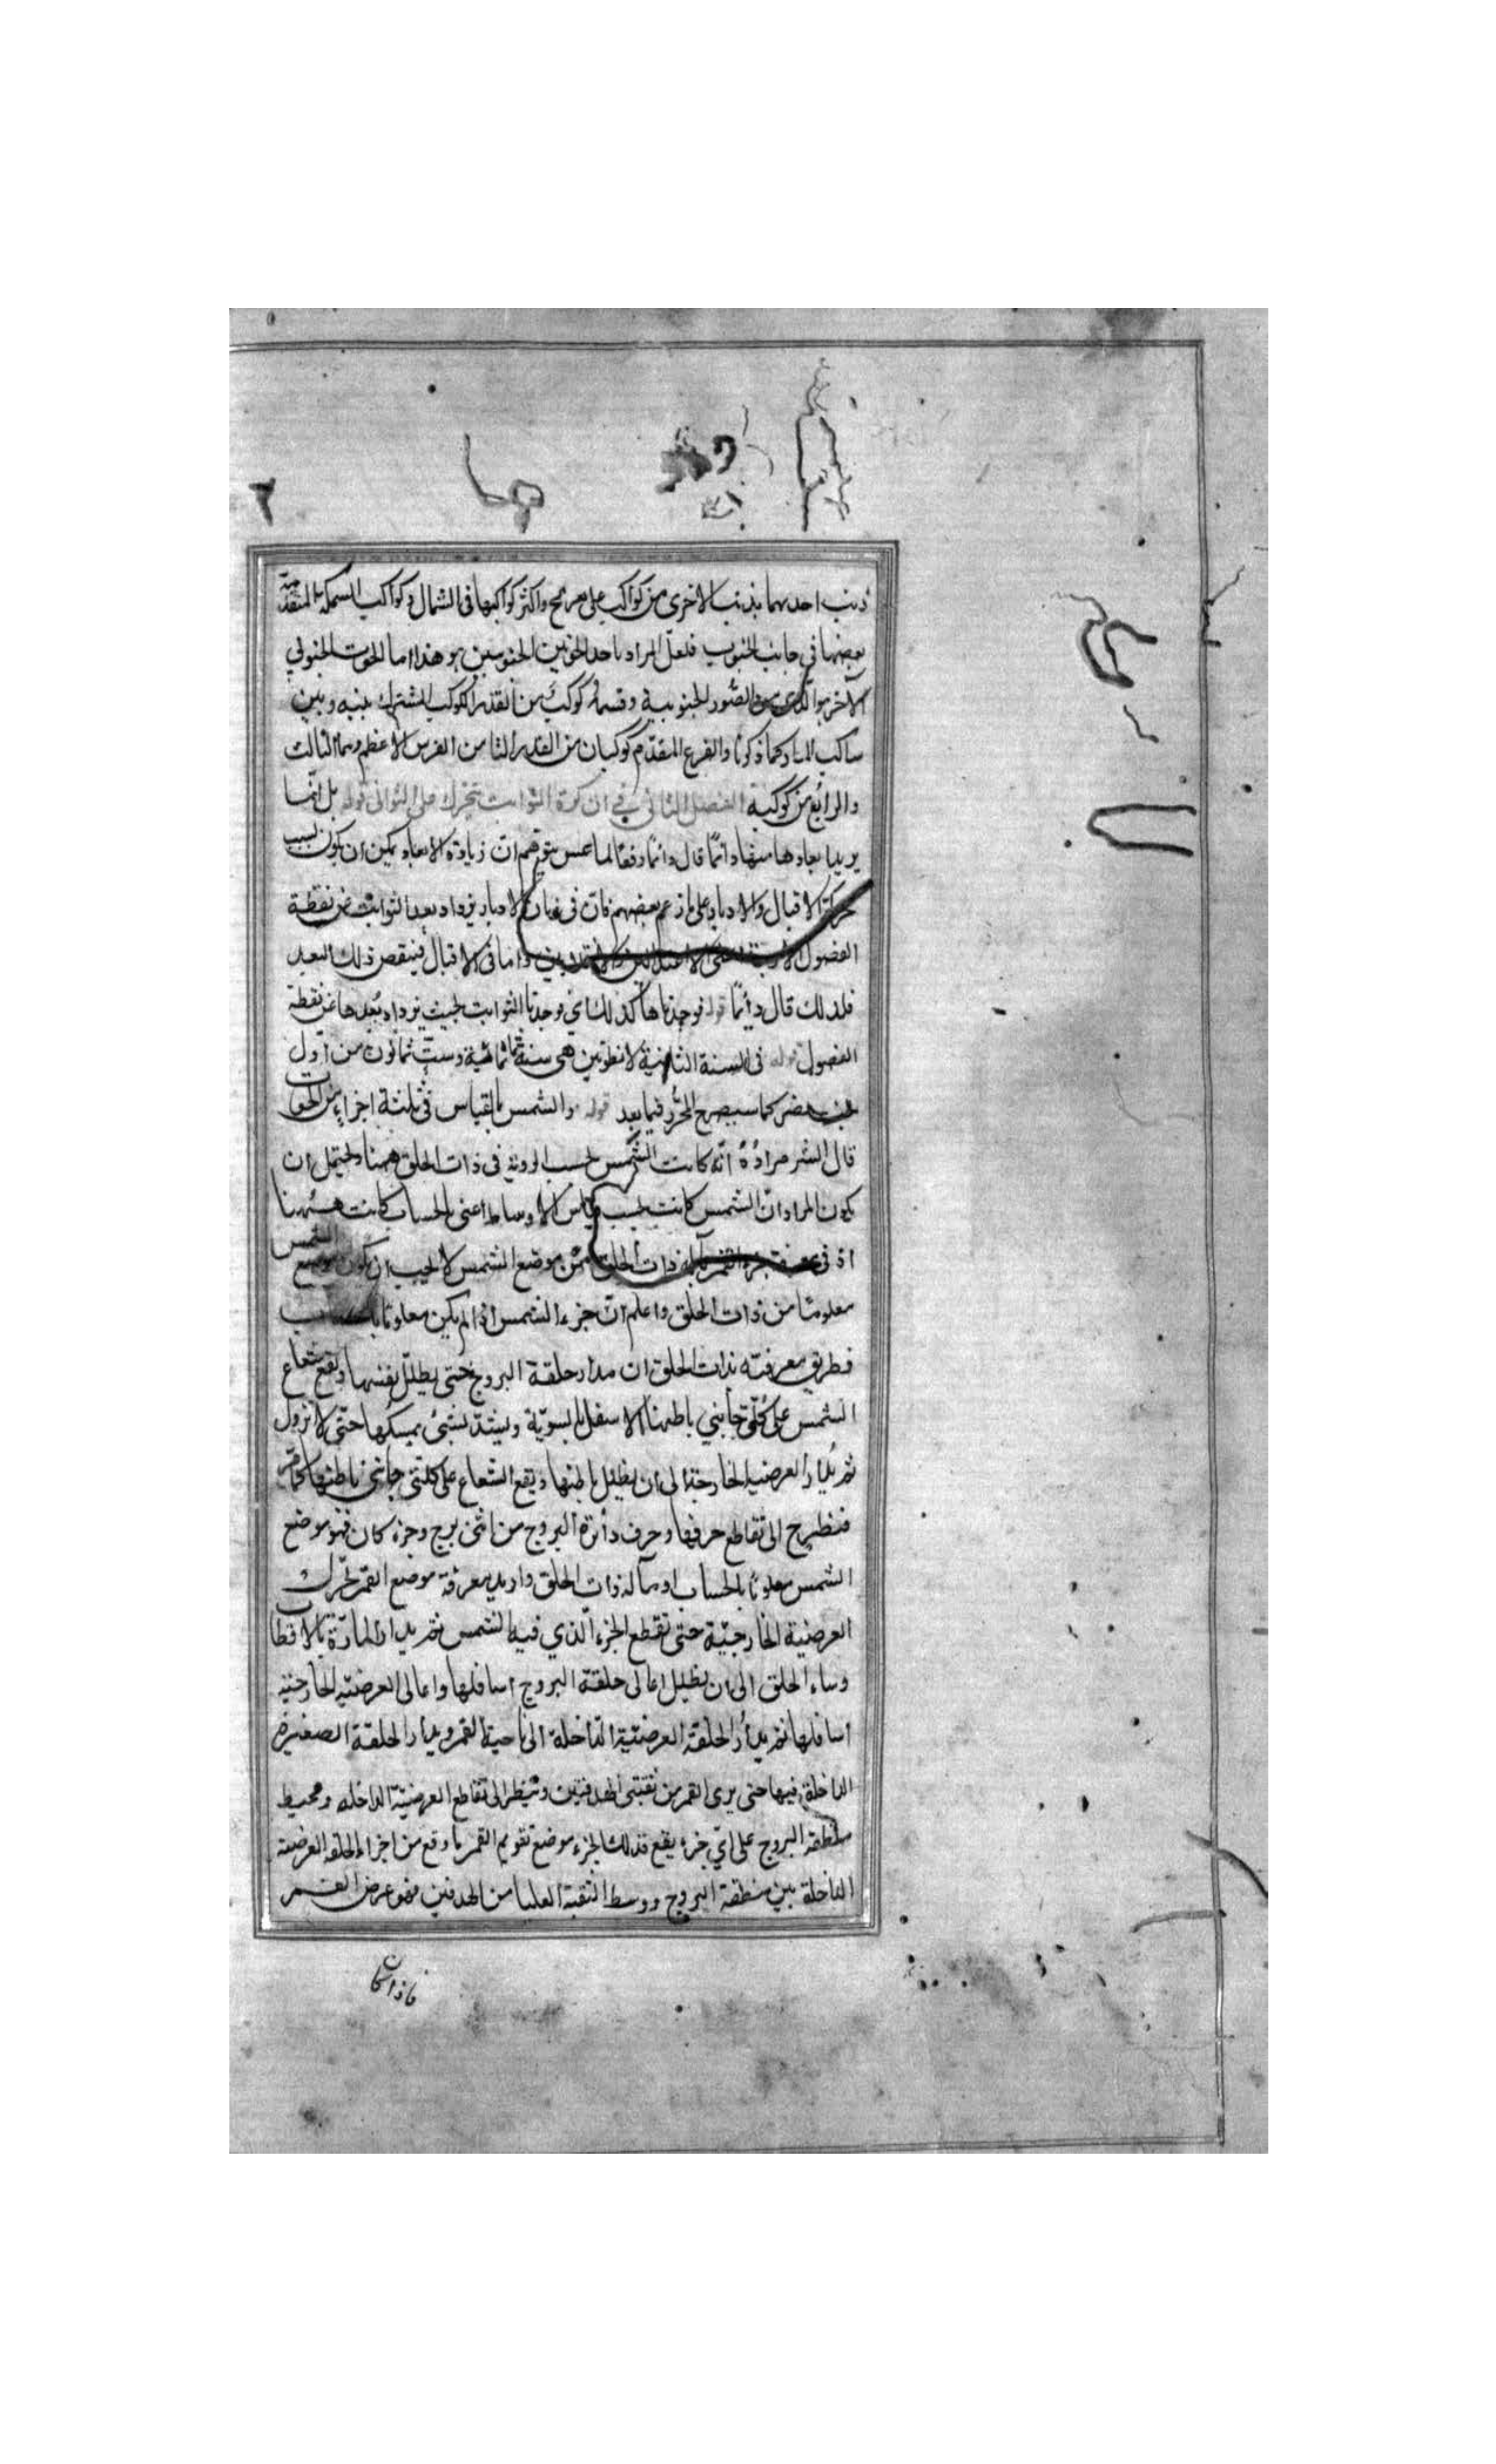 ذنب احدیهما بذنب الاخری من کواکب علی تعریج واکثر کواکبها فی الشمال وکواکب السمکة المتقدمة
بعضها فی جانب الجنوب فلعل المراد باحد الحوتین الجنوبیین هو هذا اما الحوت الجنوبی
الآخر هو الذی من الصور الجنوبیة وقسمه کوکب من القدر الکوکب المشترک بینه وبین
ساکب الماء کما ذکرنا والفرغ المقدم کوکبان من القدر الثانی من الفرس الاعظم وهما الثالث
والرابع من کوکبه الفصل الثانی فی ان کرة الثوابت تتحرک علی التوالی قوله بل انما
یرید ابعادها منها دائما قال دائما دفعا لما عسی یتوهم ان زیادة الابعاد یمکن ان یکون بسبب
حرکة الاقبال والادبار علی ما زعم بعضهم فان فی زمان الادبار یزداد بعد الثوابت عن نقطة
الفصول واما فی الاقبال فینقص ذلک البعد
فلذلک قال دائما قوله فوجدناها کذلک ای وجدنا الثوابت بحیث یزداد بعدها عن نقطة
الفصول قوله فی السنة الثانیة لانطونین هی سنة ثمانمائة وست ثمانون من اول
بخت نصر کما سیصرح المحرر فیما بعد قوله والشمس بالقیاس فی ثلثة اجزاء من الحوت
قال الشر مراده انه کانت الشمس بحسب الرویة فی ذات الحلق ههنا ویحتمل ان
یکون المراد ان الشمس کانت بحسب قیاس الاوساط اعنی بالحساب کانت ههنا
اذ فی معرفة جزء القمر بآلة ذات الحلق من موضع الشمس لا یجب ان یکون موضع الشمس
معلوما من ذات الحلق واعلم ان جزء الشمس اذا لم یکن معلوما بالحساب
فطریق معرفته بذات الحلق ان مدار حلقة البروج حتی یظلل نفسها ویقع شعاع
الشمس علی کلتی جانبی باطنها الاسفل بالسویة ویشد بشیء یمسکها حتی لا تزول
ثم یدار العرضیة الخارجة الی ان یظلل باطنها ویقع الشعاع علی کلتی جانبی باطنها کما مر
فینظر الی تقاطع حرفها وحرف دائرة البروج من ای برج وجزء کان فهو موضع
الشمس معلوما بالحساب او بآلة ذات الحلق وارید معرفة موضع القمر تحرک
العرضیة الخارجیة حتی تقطع الجزء الذی فیه الشمس ثم یدار المارة بالاقطاب
وساء الحلق الی ان یظلل اعالی حلقة البروج اسافلها واعالی العرضیة الخارجیة
اسافلها ثم یدار الحلقة العرضیة الداخلة الی ناحیة القمر ویدار الحلقة الصغیرة
الداخلة فیها حتی یری القمر من ثقبتی الهدفتین وینظر الی تقاطع العرضیة الداخلة ومحیط
منطقة البروج علی ای جزء یقع فذلک الجزء موضع تقویم القمر ما وقع من اجزاء الحلقة العرضیة
الداخلة بین منطقة البروج ووسط الثقبة العلیا من الهدفین فهو عرض القمر
فاذا کان